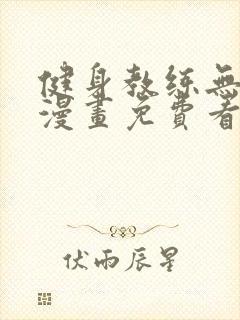 健身教练無
漫畫免費看
伏雨辰星